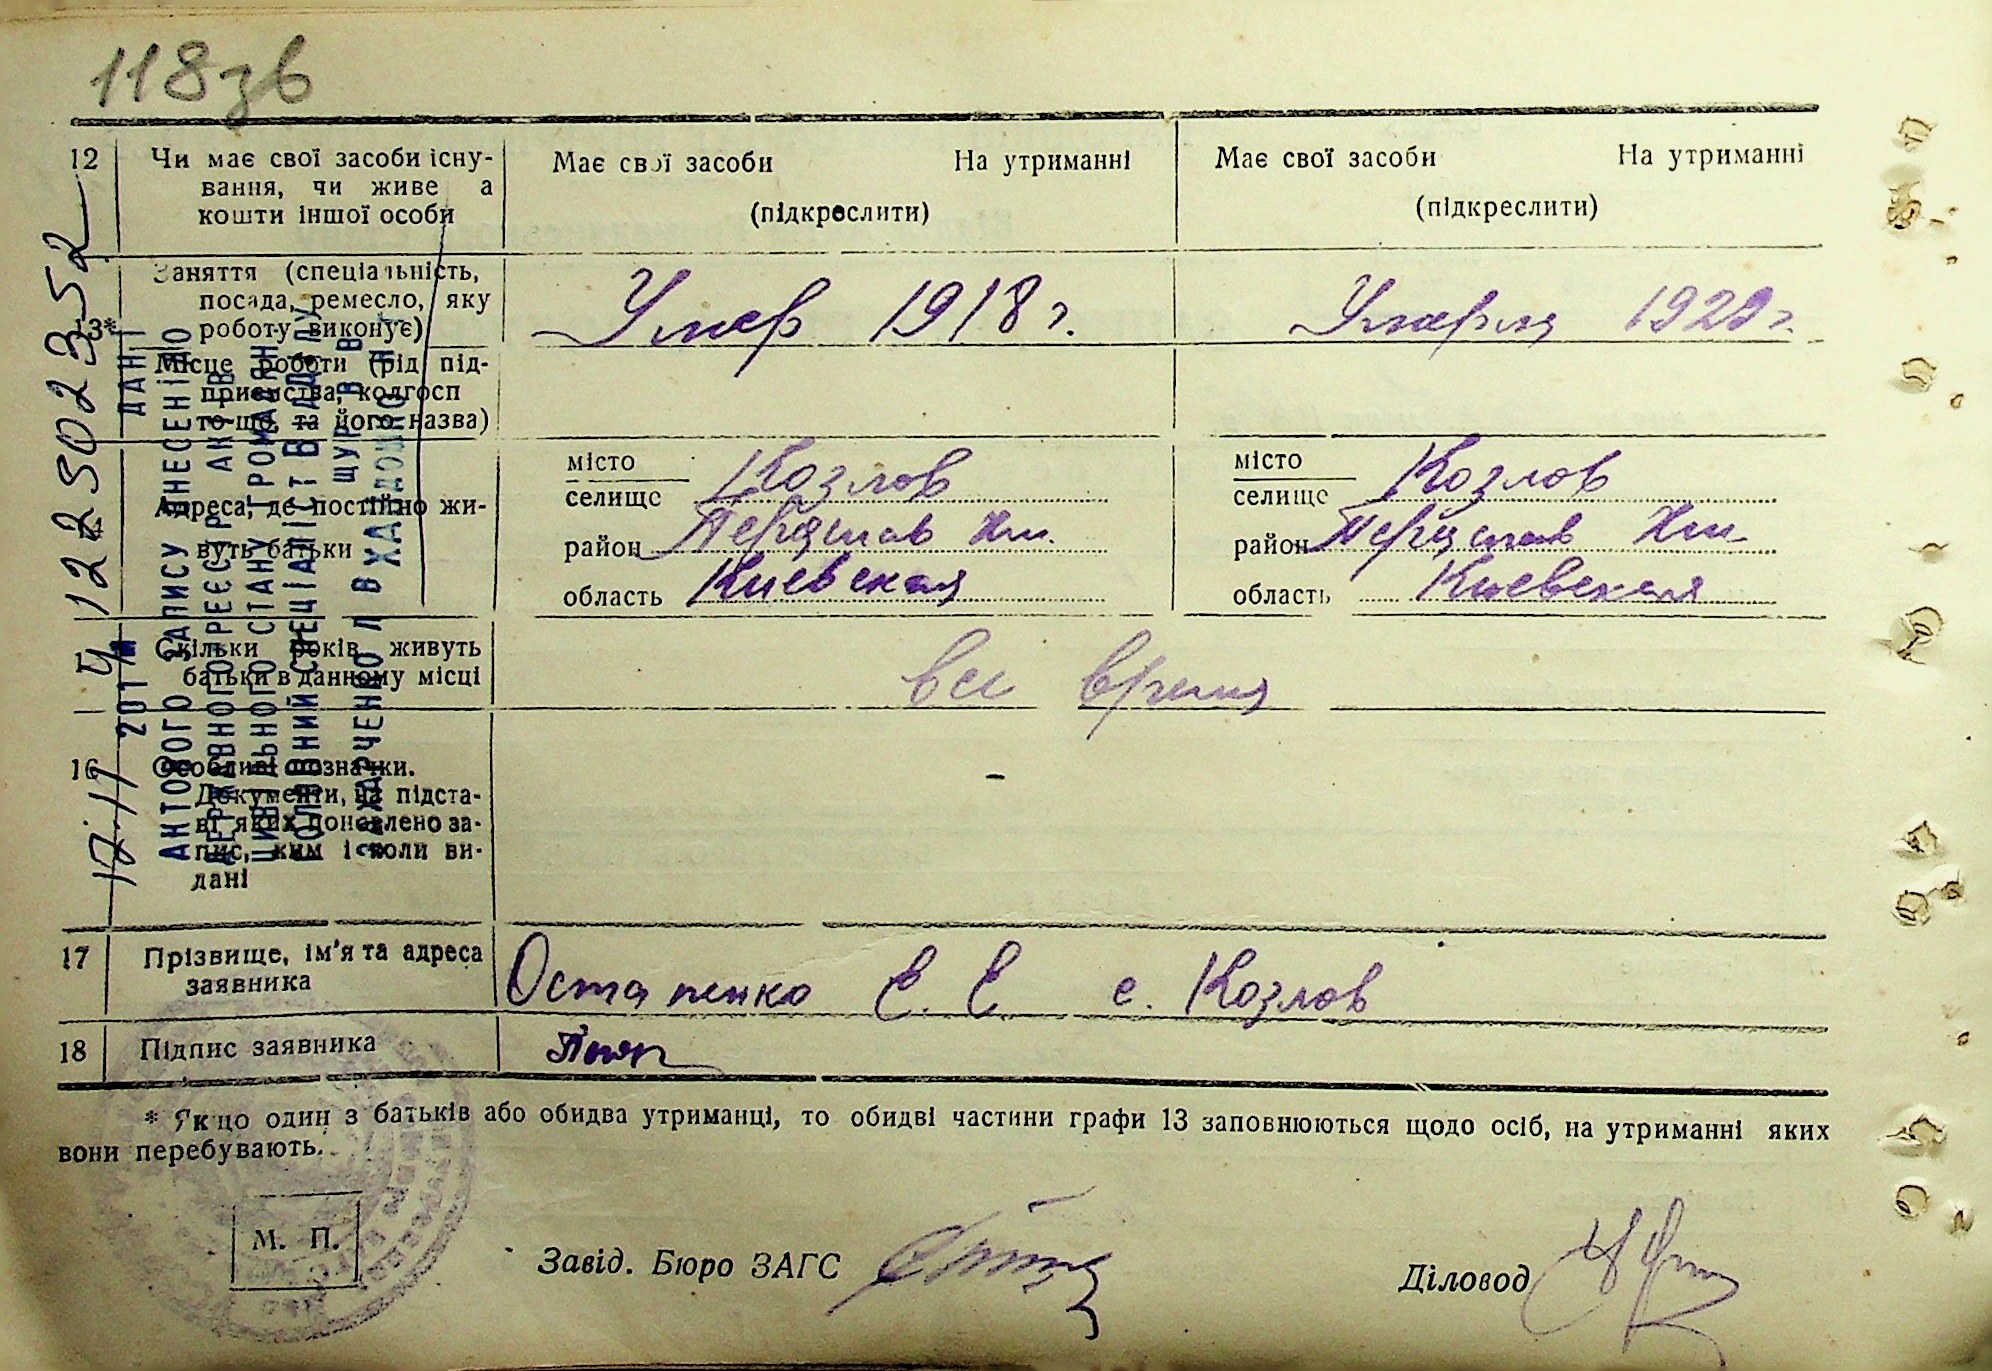 118зв
12 Чи має свої засоби існу-
вання, чи живе а
кошти іншої особи
Має свої засоби На утриманні
(підкреслити)
Має свої засоби На утриманні
(підкреслити)
13* Заняття (спеціальність,
посада, ремесло, яку
роботу виконує)
Умер 1918 г.
Умерла 1920 г.
Місце роботи (рід під-
приємства, колгосп
то-що, та його назва)
Адреса, де постійно жи-
вуть батьки
місто
селище Козлов
район Переяслав Хм.
область Киевская
місто
селище Козлов
район Переяслав Хм.
область Киевская
Скільки років живуть
батьки в данному місці
все время
16 Особливі позначки.
Документи, на підста-
ві яких поновлено за-
пис, ким і коли ви-
дані
-
17 Прізвище, ім'я та адреса
заявника
Остапенко Е. Е. с. Козлов
18 Підпис заявника
* Якщо один з батьків або обидва утриманці, то обидві частини графи 13 заповнюються щодо осіб, на утриманні яких
вони перебувають.
М. П.
Завід. Бюро ЗАГС
Діловод
1225023352
ДАНІ
АКТОВОГО ЗАПИСУ ВНЕСЕНІ ДО
ДЕРЖАВНОГО РЕЄСТР АКТІВ
ЦИВІЛЬНОГО СТАНУ ГРОМАДЯН
ГОЛОВНИЙ СПЕЦІАЛІСТ ВІДДІЛУ